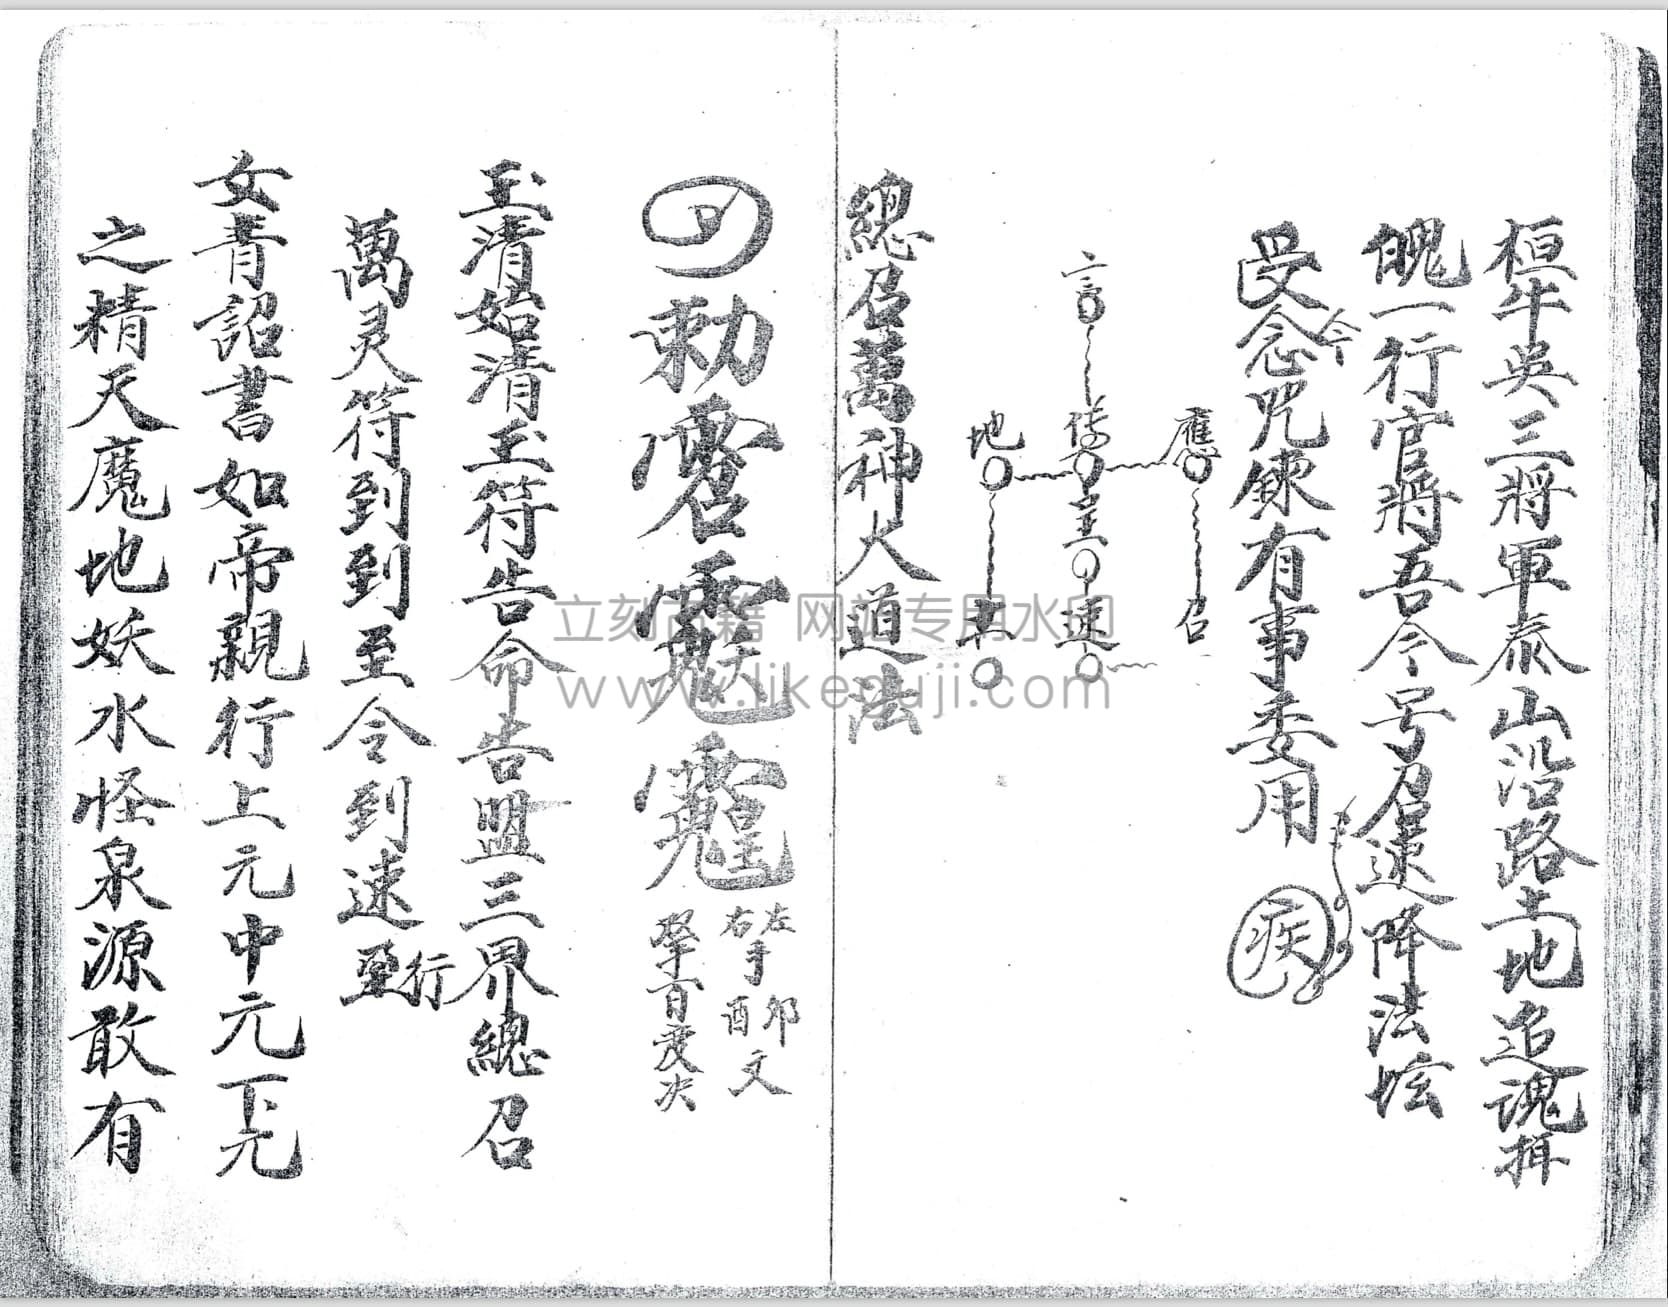 桓牛吳三將軍泰山沿路土地追魂捉
魄一行官將吾令号召速降法坛
念咒鍊有事委用
今
疾
應 召
言 主 速
地
總召萬神大道法
勅
左右手卯酉文
百度次
玉清始清玉符告命告盟三界總召
萬灵符到到至令到速行
女青詔書如帝親行上元中元下元
之精天魔地妖水怪泉源敢有
立刻古籍 网站专用水印
www.likeguji.com